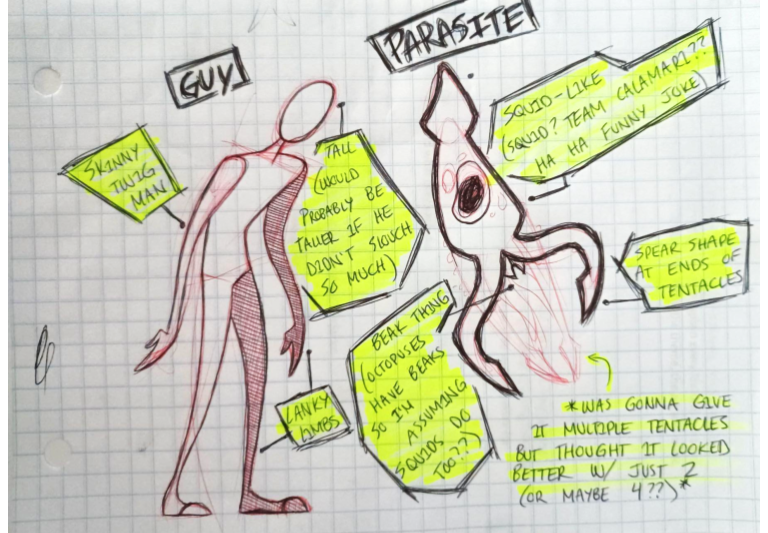 GUY
PARASITE
SKINNY
TWIG
MAN
TALL
(WOULD
PROBABLY BE
TALLER IF HE
DIDN'T SLOUCH
SO MUCH)
LANKY
LIMBS
SQUID-LIKE
(SQUID? TEAM CALAMARI??
HA HA FUNNY JOKE)
SPEAR SHAPE
AT ENDS OF
TENTACLES
BEAK THING
(OCTOPUSES
HAVE BEAKS
SO I'M
ASSUMING
SQUIDS DO
TOO??)
*WAS GONNA GIVE
IT MULTIPLE TENTACLES
BUT THOUGHT IT LOOKED
BETTER W/ JUST 2
(OR MAYBE 4??)*